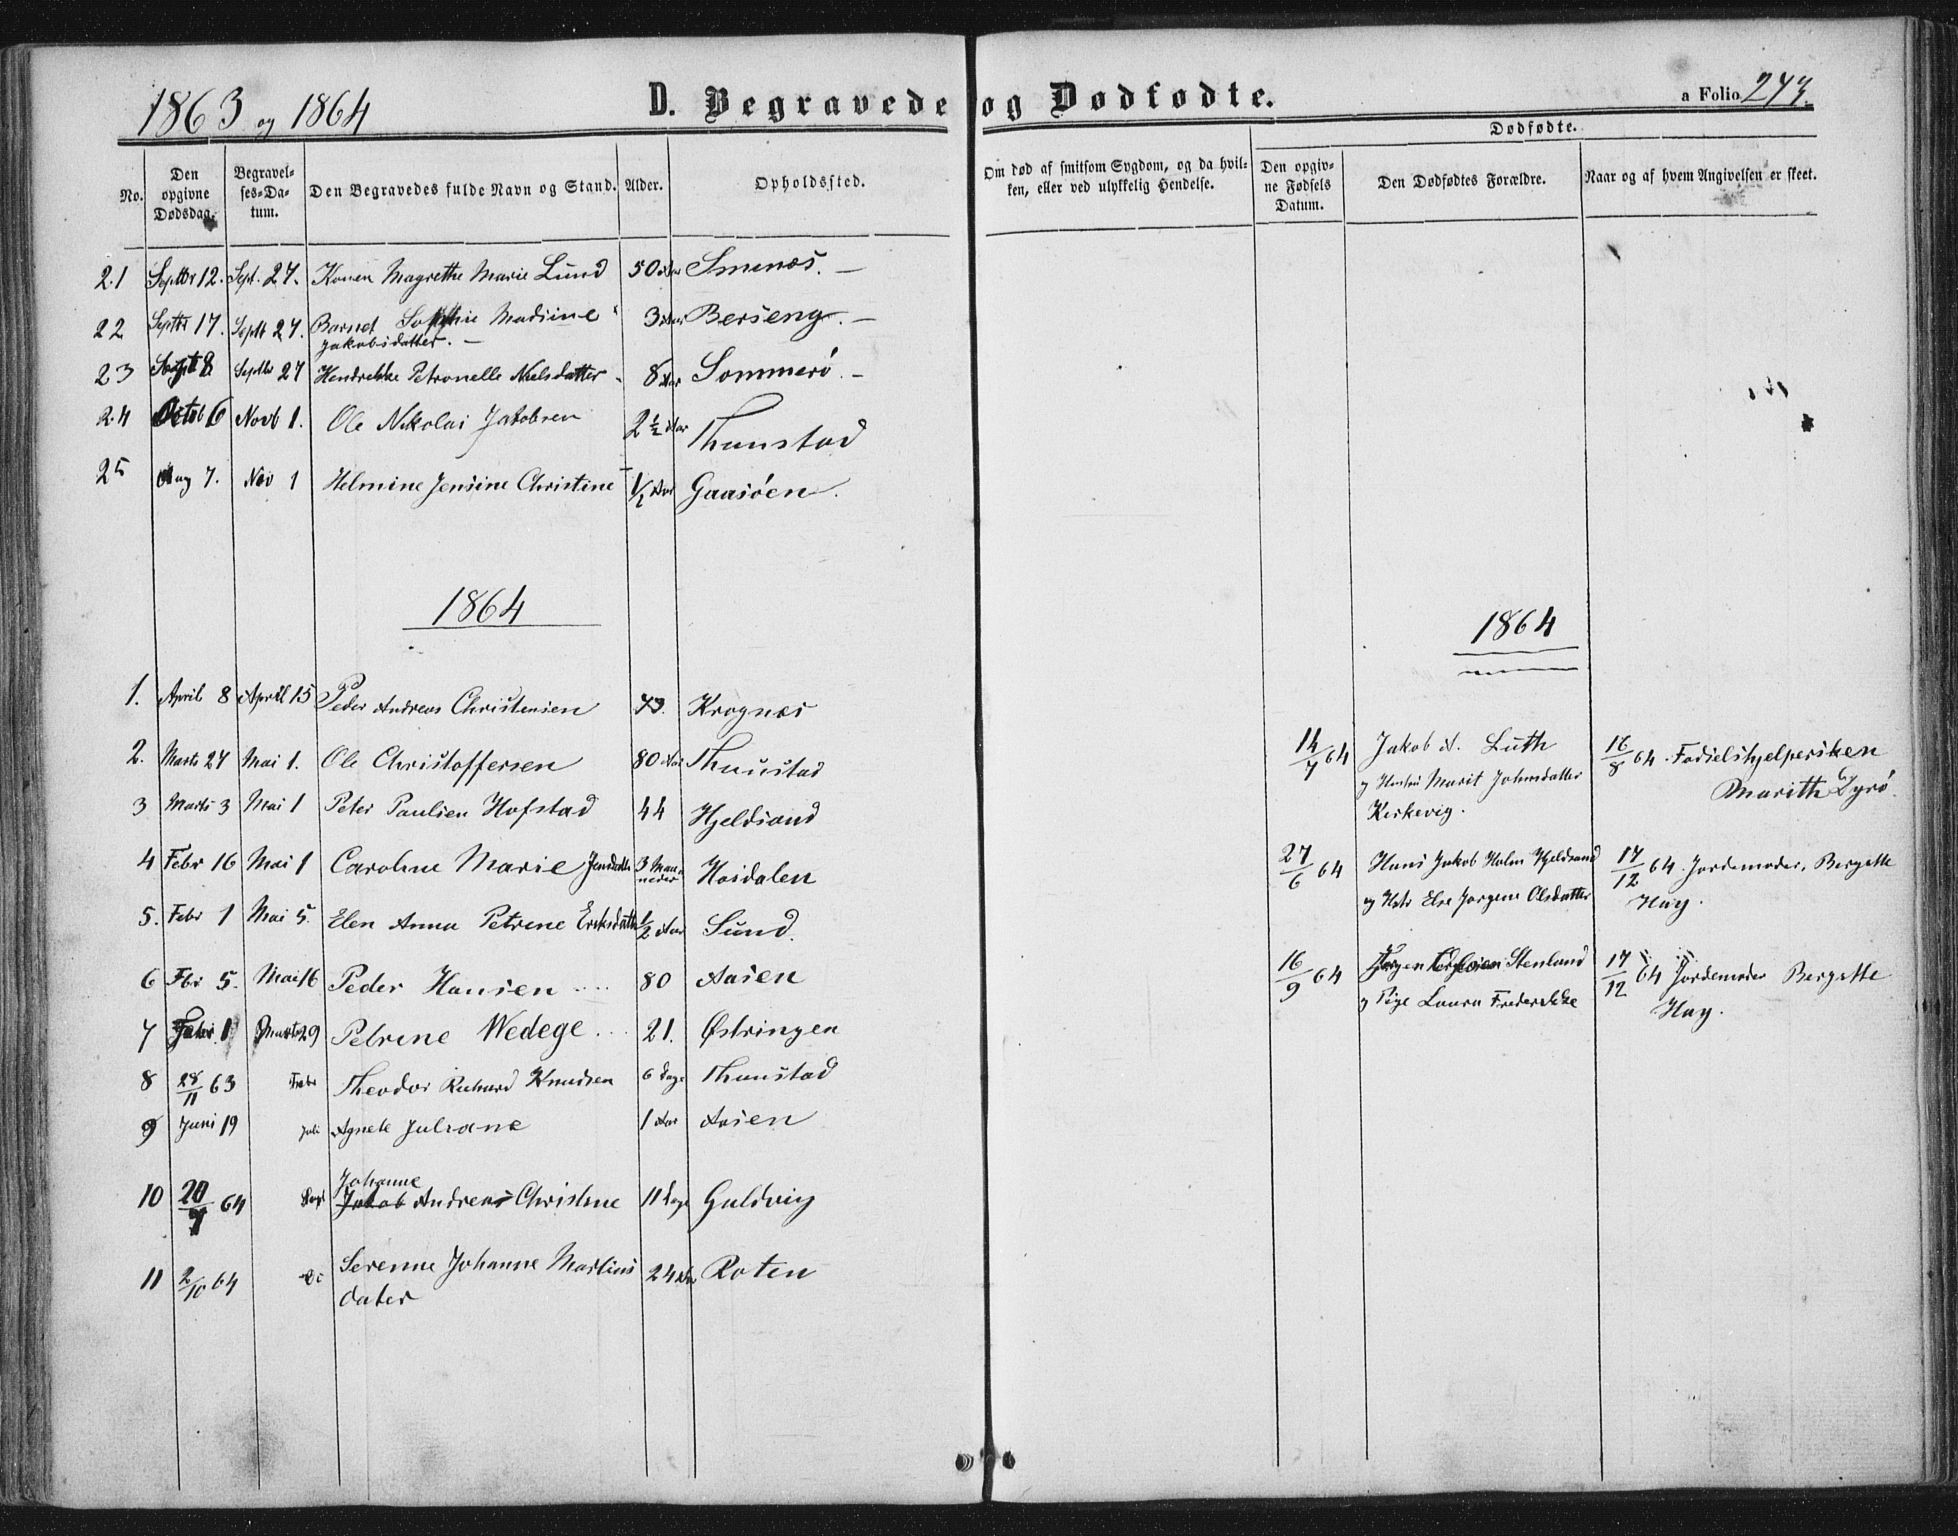 1863 og 1864 D. Begravede og Dødfødte. a Folio 273.
Dødfødte.
No. Den opgivne Dødsdag. Begravelses-Datum. Den Begravedes fulde Navn og Stand. Alder. Opholdssted. Om død af smitsom Sygdom, og da hvilken, eller ved ulykkelig Hendelse. Den opgivne Fødsels Datum. Den Dødfødtes Forældre. Naar og af hvem Angivelsen er skeet.
21 Septbr 12. Sept. 27. Konen Magrethe Marie Lund 50 Aar Smines. —
22 Septbr 17. Septb 27. Barnet Sophie Madsine 3 Aar Berseng. —
Jakobsdatter. —
23 Sept 8 Septbr 27 Hendrekke Petronelle Nielsdatter 8 Aar Sommerö. —
24 Octob 6 Novb 1. Ole Nikolai Jakobsen 2 1/2 Aar Thunstad
25 Aug 7. Nov 1 Helmine Jensine Christine 1/2 Aar Gaasöen.
1864
1. April 8 April 15 Peder Andreas Christensen 73. Krognæs
2. Marts 27 Mai 1. Ole Christoffersen 80 Aar Thunstad
3 Marts 3 Mai 1 Peter Paulsen Hofstad 44 Hjeldsand
4 Febr 16 Mai 1 Caroline Marie Jensdatter 3 Maaneder Hoidalen
5. Febr 1 Mai 5. Elen Anna Petrine Eriksdatter 1/2 Aar Sund.
6 Fbr 5. Mai 16 Peder Hansen 80 Aasen
7 Febr. 1 Marts 29 Petrine Wedege 21. Østringen
8 28/11 63 Febr Theodor Richard Knudsen 6 Dage Thunstad
9 Juni 19 Juli Agnete Juliane 1 Aar Aasen
Johanne
10 20/7 64 Sept Jakob Andreas Christine 11 Dage Guldvig
11 2/10 64 Do Serenne Johanne Martins 24 Aar Roten
dater
1864
14/7 64 Jakob A. Luth 16/8 64. Fødselshjelpersken
og Hustru Marit Johnsdatter Marith Dyrö.
Kirkevig.
27/6 64 Hans Jakob Holm Hjeldsand 17/12 64. Jordemoder, Bergette
og Hstr Else Jørgine Olsdatter Hay.
16/9 64 Stenland 17/12 64 Jordemoder Bergette
og Pige Laura Frederekke Hay.